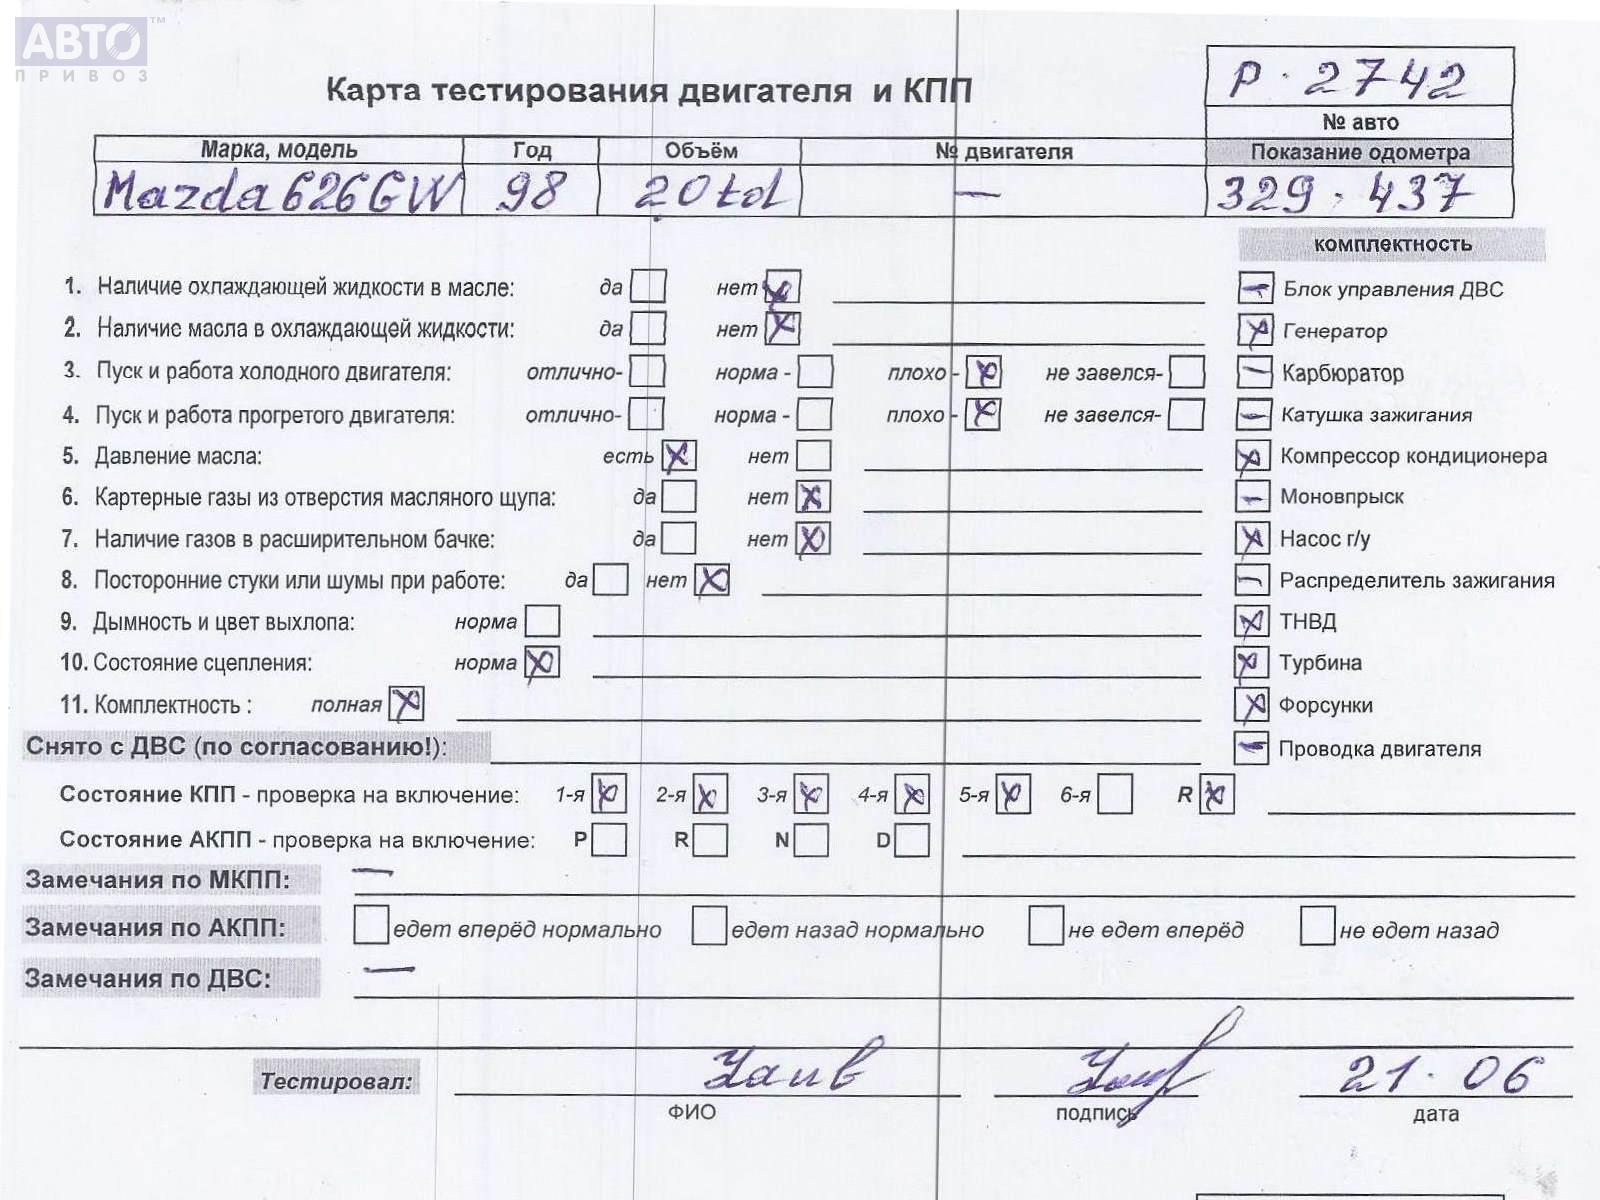 АВТО™
ПРИВОЗ
Карта тестирования двигателя и КПП
P · 2742
№ авто
Марка, модель Год Объём № двигателя Показание одометра
Mazda 626 GW 98 2.0 td — 329 · 437
комплектность
1. Наличие охлаждающей жидкости в масле: да нет
Блок управления ДВС
2. Наличие масла в охлаждающей жидкости: да нет
Генератор
3. Пуск и работа холодного двигателя: отлично- норма - плохо - не завелся-
Карбюратор
4. Пуск и работа прогретого двигателя: отлично- норма - плохо - не завелся-
Катушка зажигания
5. Давление масла: есть нет
Компрессор кондиционера
6. Картерные газы из отверстия масляного щупа: да нет
Моновпрыск
7. Наличие газов в расширительном бачке: да нет
Насос г/у
8. Посторонние стуки или шумы при работе: да нет
Распределитель зажигания
9. Дымность и цвет выхлопа: норма
ТНВД
10. Состояние сцепления: норма
Турбина
11. Комплектность : полная
Форсунки
Снято с ДВС (по согласованию!):
Проводка двигателя
Состояние КПП - проверка на включение: 1-я 2-я 3-я 4-я 5-я 6-я R
Состояние АКПП - проверка на включение: P R N D
Замечания по МКПП: —
Замечания по АКПП: едет вперёд нормально едет назад нормально не едет вперёд не едет назад
Замечания по ДВС: —
Тестировал: 21 · 06
ФИО подпись дата